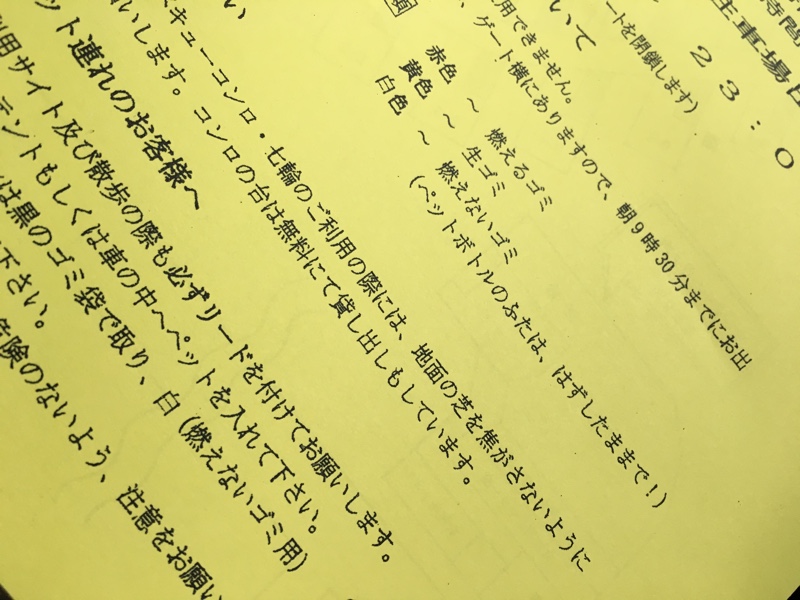 主車場
23:0
ートを閉鎖します)
いて
用できません。
、ゲート横にありますので、朝9時30分までにお出
赤色 ～ 燃えるゴミ
黄色 ～ 生ゴミ
白色 ～ 燃えないゴミ
(ペットボトルのふたは、はずしたままで!)
い
キューコンロ・七輪のご利用の際には、地面の芝を焦がさないように
いします。コンロの台は無料にて貸し出しもしています。
ット連れのお客様へ
用サイト及び散歩の際も必ずリードを付けてお願いします。
テントもしくは車の中へペットを入れて下さい。
は黒のゴミ袋で取り、白(燃えないゴミ用)
下さい。
危険のないよう、注意をお願い